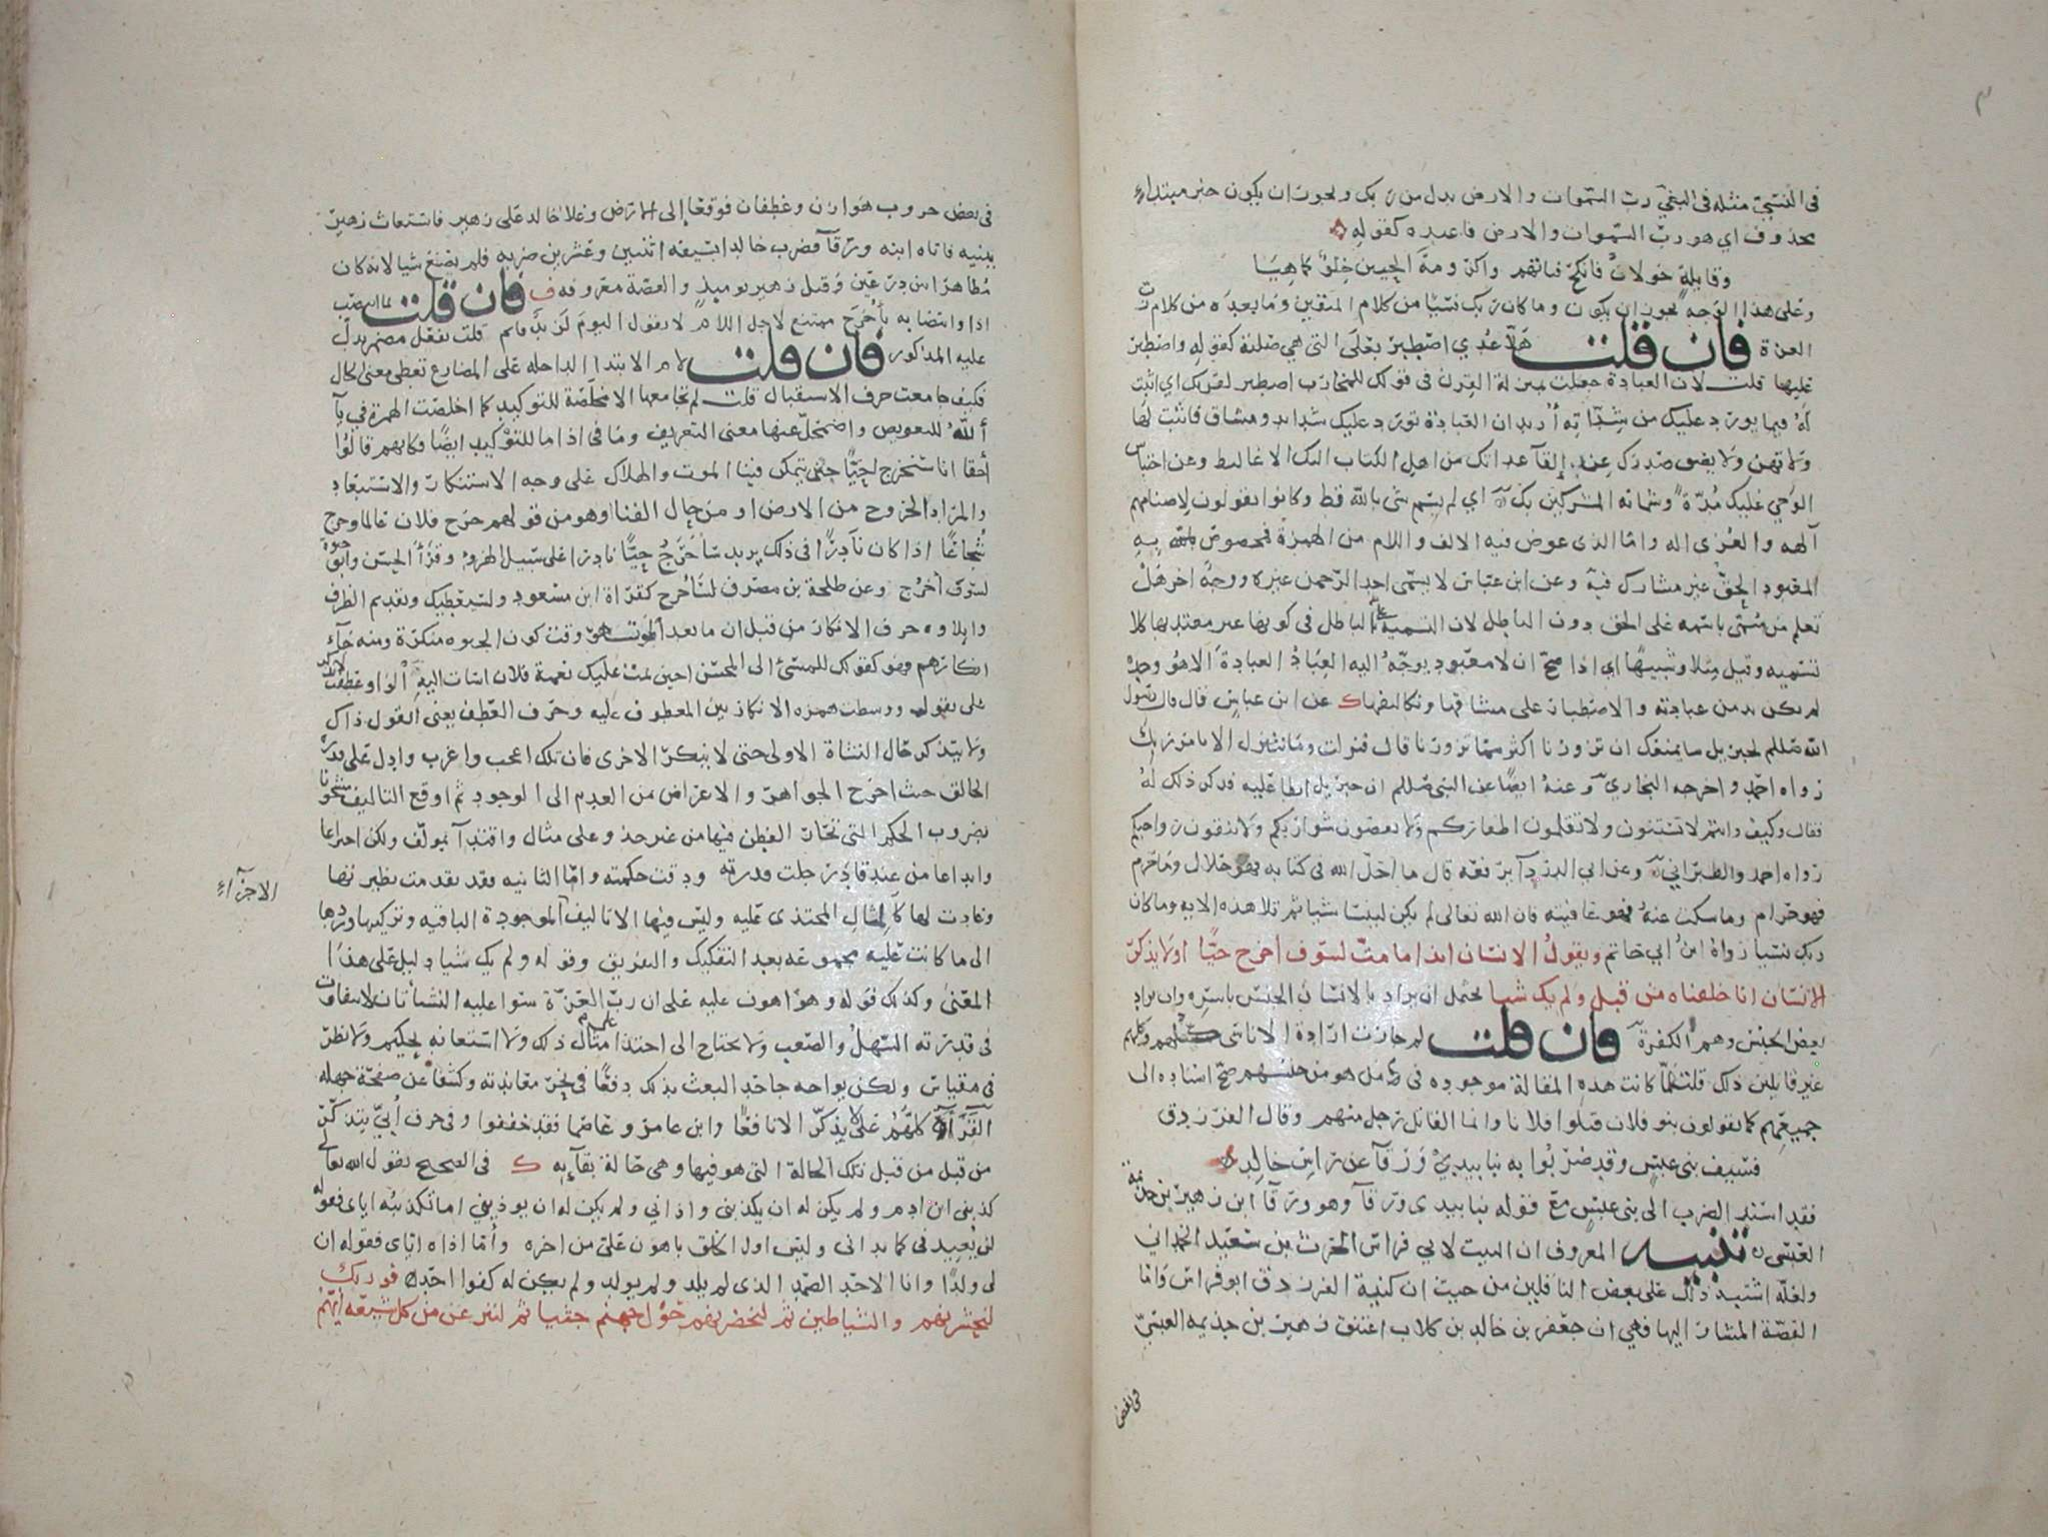 في النسي مثله في البغي رب السموات والارض بدل من ربك ويجوز ان يكون خبر مبتداء
محذوف اي هو رب السموات والارض فاعبده كقوله
وقايلة خولان فانكح فتاتهم واكرومة الحيين خلو كما هيا
وعلى هذا الوجه يجوز ان يكون وما كان ربك نسيا من كلام المتقين وما بعده من كلام رب
العزة فان قلت هلا عدي اصطبر بعلى التي هي صلته كقوله واصطبر
عليها قلت لان العبادة جعلت بمنزلة القرن في قولك للمحارب اصطبر لقرنك اي اثبت
له فيما يورد عليك من شداته اريد ان العبادة تورد عليك شدايد ومشاق فاثبت لها
ولا تهن ولا يضق صدرك عن القآ عداتك من اهل الكتاب اليك الاغاليط وعن احتباس
الوحي عليك مدة وشماتة المشركين بك اي لم يسم شي بالله قط وكانوا يقولون لاصنامهم
آلهه والعزى اله واما الذي عوض فيه الالف واللام من الهمزة فمخصوص به
المعبود الحق غير مشارك فيه وعن ابن عباس لا يسمى احد الرحمن غيره ووجه اخر هل
تعلم من سمي باسمه على الحق دون الباطل لان التسمية على الباطل في كونها غير معتد بها كلا
تسميه وقيل مثلا وشبيها اي اذا صح ان لا معبود يوجه اليه العباد العبادة الا هو وحده
لم يكن بد من عبادته والاصطبار على مشاقها وتكاليفها ك عن ابن عباس قال قال رسول
الله صللم لجبريل ما يمنعك ان تزورنا اكثر مما تزورنا قال فنزلت وما نتنزل الا بامر ربك
رواه احمد واخرجه البخاري وعنه ايضا عن النبي صللم ان جبريل ابطا عليه فذكر ذلك له
فقال وكيف وانتم لا تستنون ولا تقلمون اظفاركم ولا تقصون شواربكم ولا تنقون رواجبكم
رواه احمد والطبراني وعن ابي الدردآ يرفعه قال ما احل الله في كتابه فهو حلال وما حرم
فهو حرام وما سكت عنه فهو عافيته فان الله تعالى لم يكن لينسا شيا ثم تلا هذه الايه وما كان
ربك نسيا رواه ابن ابي حاتم ويقول الانسان ائذا ما مت لسوف اخرج حيا اولا يذكر
الانسان انا خلقناه من قبل ولم يك شيا يحتمل ان يراد بالانسان الجنس باسره وان يراد
بعض الجنس وهم الكفرة فان قلت لم جازت ارادة الاناسي كلهم وكلهم
غير قايلين ذلك قلت لما كانت هذه المقالة موجوده في من هو من جنسهم صح اسناده الى
جميعهم كما يقولون بنو فلان قتلوا فلانا وانما القاتل رجل منهم وقال الفرزدق
فسيف بني عبس وقد ضربوا به نبا بيدي ورقآ عن راس خالد
فقد اسند الضرب الى بني عبس مع قوله نبا بيدي ورقآ وهو ورقآ ابن زهير بن جذيمة
العبسي تنبيه المعروف ان البيت لابي فراس الحرث بن سعيد الحمداني
ولعله اشتبه ذلك على بعض الناقلين من حيث ان كنية الفرزدق ابو فراس واما
القصة المشار اليها فهي ان جعفر بن خالد بن كلاب اعتنق زهير بن جذيمه العبسي
في بعض
في بعض حروب هوازن وغطفان فوقعا إلى الارض وعلا خالد على زهير فاستغاث زهير
ببنيه فاتاه ابنه ورقآ فضرب خالدا بسيفه اثنين وعشرين ضربه فلم يصنع شيا لانه كان
مظاهرا بين درعين وقتل زهير يوميذ والقصة معروفه ف فان قلت بما انتصب
اذا وانتصابه باخرج ممتنع لاجل اللام لا يقول اليوم لزيد قايم قلت بفعل مضمر يدل
عليه المذكور فان قلت لام الابتدا الداخله على المضارع تعطي معنى الحال
فكيف جامعت حرف الاستقبال قلت لم تجامعها الا مخلصة للتوكيد كما اخلصت الهمزة في يآ
ألله للتعويض واضمحل عنها معنى التعريف وما في اذا ما للتوكيد ايضا فكانهم قالوا
أحقا انا سنخرج احيا حين تمكن فينا الموت والهلاك على وجه الاستنكار والاستبعاد
والمراد الخروج من الارض او من حال الفنا او هو من قولهم خرج فلان عالما وخرج
شجاعا اذا كان نادرا في ذلك يريد سأخرج حيا نادرا على سبيل الهزو وقرأ الحسن وابو حيوة
لسوف أخرج وعن طلحة بن مصرف لسأخرج كقراة ابن مسعود ولسيعطيك وتقديم الظرف
وايلاوه حرف الانكار من قبل ان ما بعد الموت هو وقت كون الحيوه منكرة ومنه جآء
انكارهم فهو كقولك للمسئ الى المحسن احين تمت عليك نعمة فلان اسات اليه الواو عطفت لا يذكر
على يقول ووسطت همزه الانكار بين المعطوف عليه وحرف العطف يعني ايقول ذاك
ولا يتذكر حال النشاة الاولى حتى لا ينكر الاخرى فان تلك اعجب واغرب وادل على قدرة
الخالق حيث اخرج الجواهر والاعراض من العدم الى الوجود ثم اوقع التاليف مشحونا
بضروب الحكم التي تحار الفطن فيها من غير حذو على مثال واقتدآ بمولف ولكن اختراعا
وابداعا من عند قادر جلت قدرته ودقت حكمته واما الثانيه فقد تقدمت نظيرتها
وعادت لها كالمثال المحتذى عليه وليس فيها الا تاليف الموجودة الباقيه وتركيبها وردها
الاجزآء
الى ما كانت عليه مجموعه بعد التفكيك والتفريق وقوله ولم يك شيا دليل على هذا
المعنى وكذلك قوله وهو اهون عليه على ان رب العزة سوا عليه النشأتان لا يتفاوت
في قدرته السهل والصعب ولا يحتاج الى احتذا على مثال ذلك ولا استعانه بحكيم ولا نظر
في مقياس ولكن يواجه جاحد البعث بذلك دفعا في نحر معاندته وكشفا عن صفحة جهله
القرآء كلهم على لا يذكر الا نافعا وابن عامر وعاصما فقد خففوا وفي حرف أبي يتذكر
من قبل من قبل تلك الحالة التي هو فيها وهي حالة بقآئه ك في الصحيح يقول الله تعالى
كذبني ابن ادم ولم يكن له ان يكذبني واذاني ولم يكن له ان يوذيني اما تكذيبه اياي فقوله
لن يعيدني كما بداني وليس اول الخلق باهون علي من اخره وأما اذاه اياي فقوله ان
لي ولدا وانا الاحد الصمد الذي لم يلد ولم يولد ولم يكن له كفوا احد فوربك
لنحشرنهم والشياطين ثم لنحضرنهم حول جهنم جثيا ثم لننزعن من كل شيعة ايهم